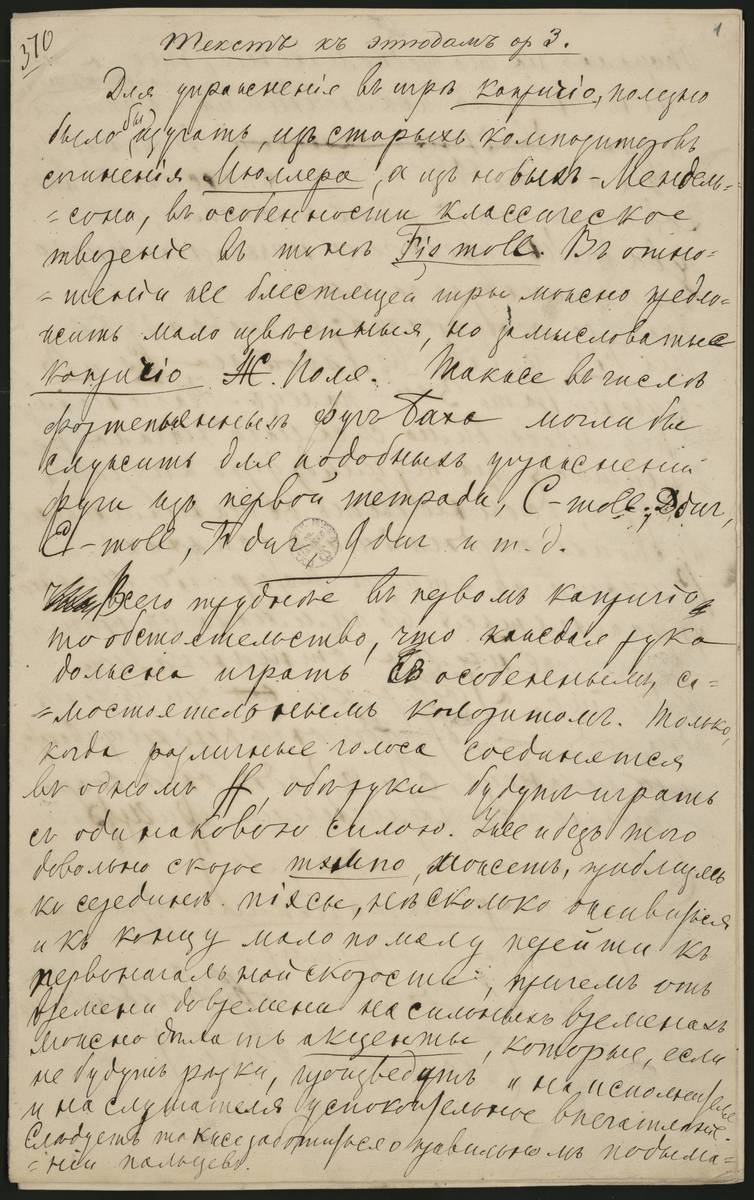 370
1
Текстъ къ этюдамъ op 3.
Для упражненія въ игрѣ капричіо, полезно
было бы изучать, изъ старыхъ композиторовъ
сочиненія Мюллера, а изъ новыхъ - Мендель-
=сона, въ особенности классическое
твореніе въ тонѣ Fis moll. Въ отно=
=шеніи же блестящей игры можно предло-
жить мало извѣстныя, но замысловатые
капричіо Ж. Поля. Также въ числѣ
фортепьянныхъ фугъ Баха могли бы
служить для подобныхъ упражненій
фуги изъ первой тетради, C-moll, D dur,
d-moll, F dur, G dur и т. д.
Всего труднѣе въ первомъ капричіо
то обстоятельство, что каждая рука
должна играть съ особеннымъ, са=
=мостоятельнымъ колоритомъ. Только,
когда различные голоса соединятся
въ одномъ ff, обѣ руки будутъ играть
съ одинаковою силою. Уже и безъ того
довольно скорое темпо, можетъ, приближаясь
къ серединѣ піесы, нѣсколько оживиться
и къ концу мало по малу перейти къ
первоначальной скорости, причемъ отъ
времени до времени на сильныхъ временахъ
можно дѣлать акценты, которые, если
не будутъ рѣзки, произведутъ и на исполнителе
и на слушателя успокоительное впечатлѣніе.
Слѣдуетъ также заботиться о правильномъ подыма=
=ніи пальцевъ.